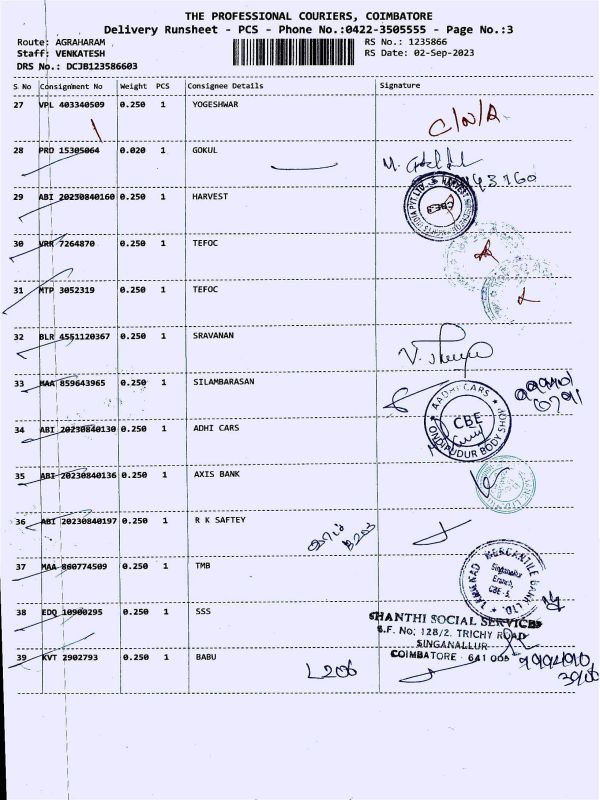 THE PROFESSIONAL COURIERS, COIMBATORE
Delivery Runsheet - PCS - Phone No.:0422-3505555 - Page No.:3
Route: AGRAHARAM RS No.: 1235866
Staff: VENKATESH RS Date: 02-Sep-2023
DRS No.: DCJB123586603
S No Consignment No Weight PCS Consignee Details Signature
27 VPL 403340509 0.250 1 YOGESHWAR
C/N/A.
28 PRD 15305064 0.020 1 GOKUL
29 ABI 20230840160 0.250 1 HARVEST
30 VRR 7264870 0.250 1 TEFOC
31 MTP 3052319 0.250 1 TEFOC
32 BLR 4551120367 0.250 1 SRAVANAN
33 MAA 859643965 0.250 1 SILAMBARASAN
34 ABI 20230840130 0.250 1 ADHI CARS
AADHI CARS
CBE
ONDIPUDUR BODY SHOP
35 ABI 20230840136 0.250 1 AXIS BANK
36 ABI 20230840197 0.250 1 R K SAFTEY
37 MAA 860774509 0.250 1 TMB
TAMILNAD MERCANTILE BANK LTD.
Singanallur
Branch,
CBE - 5.
38 EDQ 10900295 0.250 1 SSS
SHANTHI SOCIAL SERVICES
S.F. NO: 128/2. TRICHY ROAD
SINGANALLUR
COIMBATORE - 641 005
39 KVT 2902793 0.250 1 BABU
L206